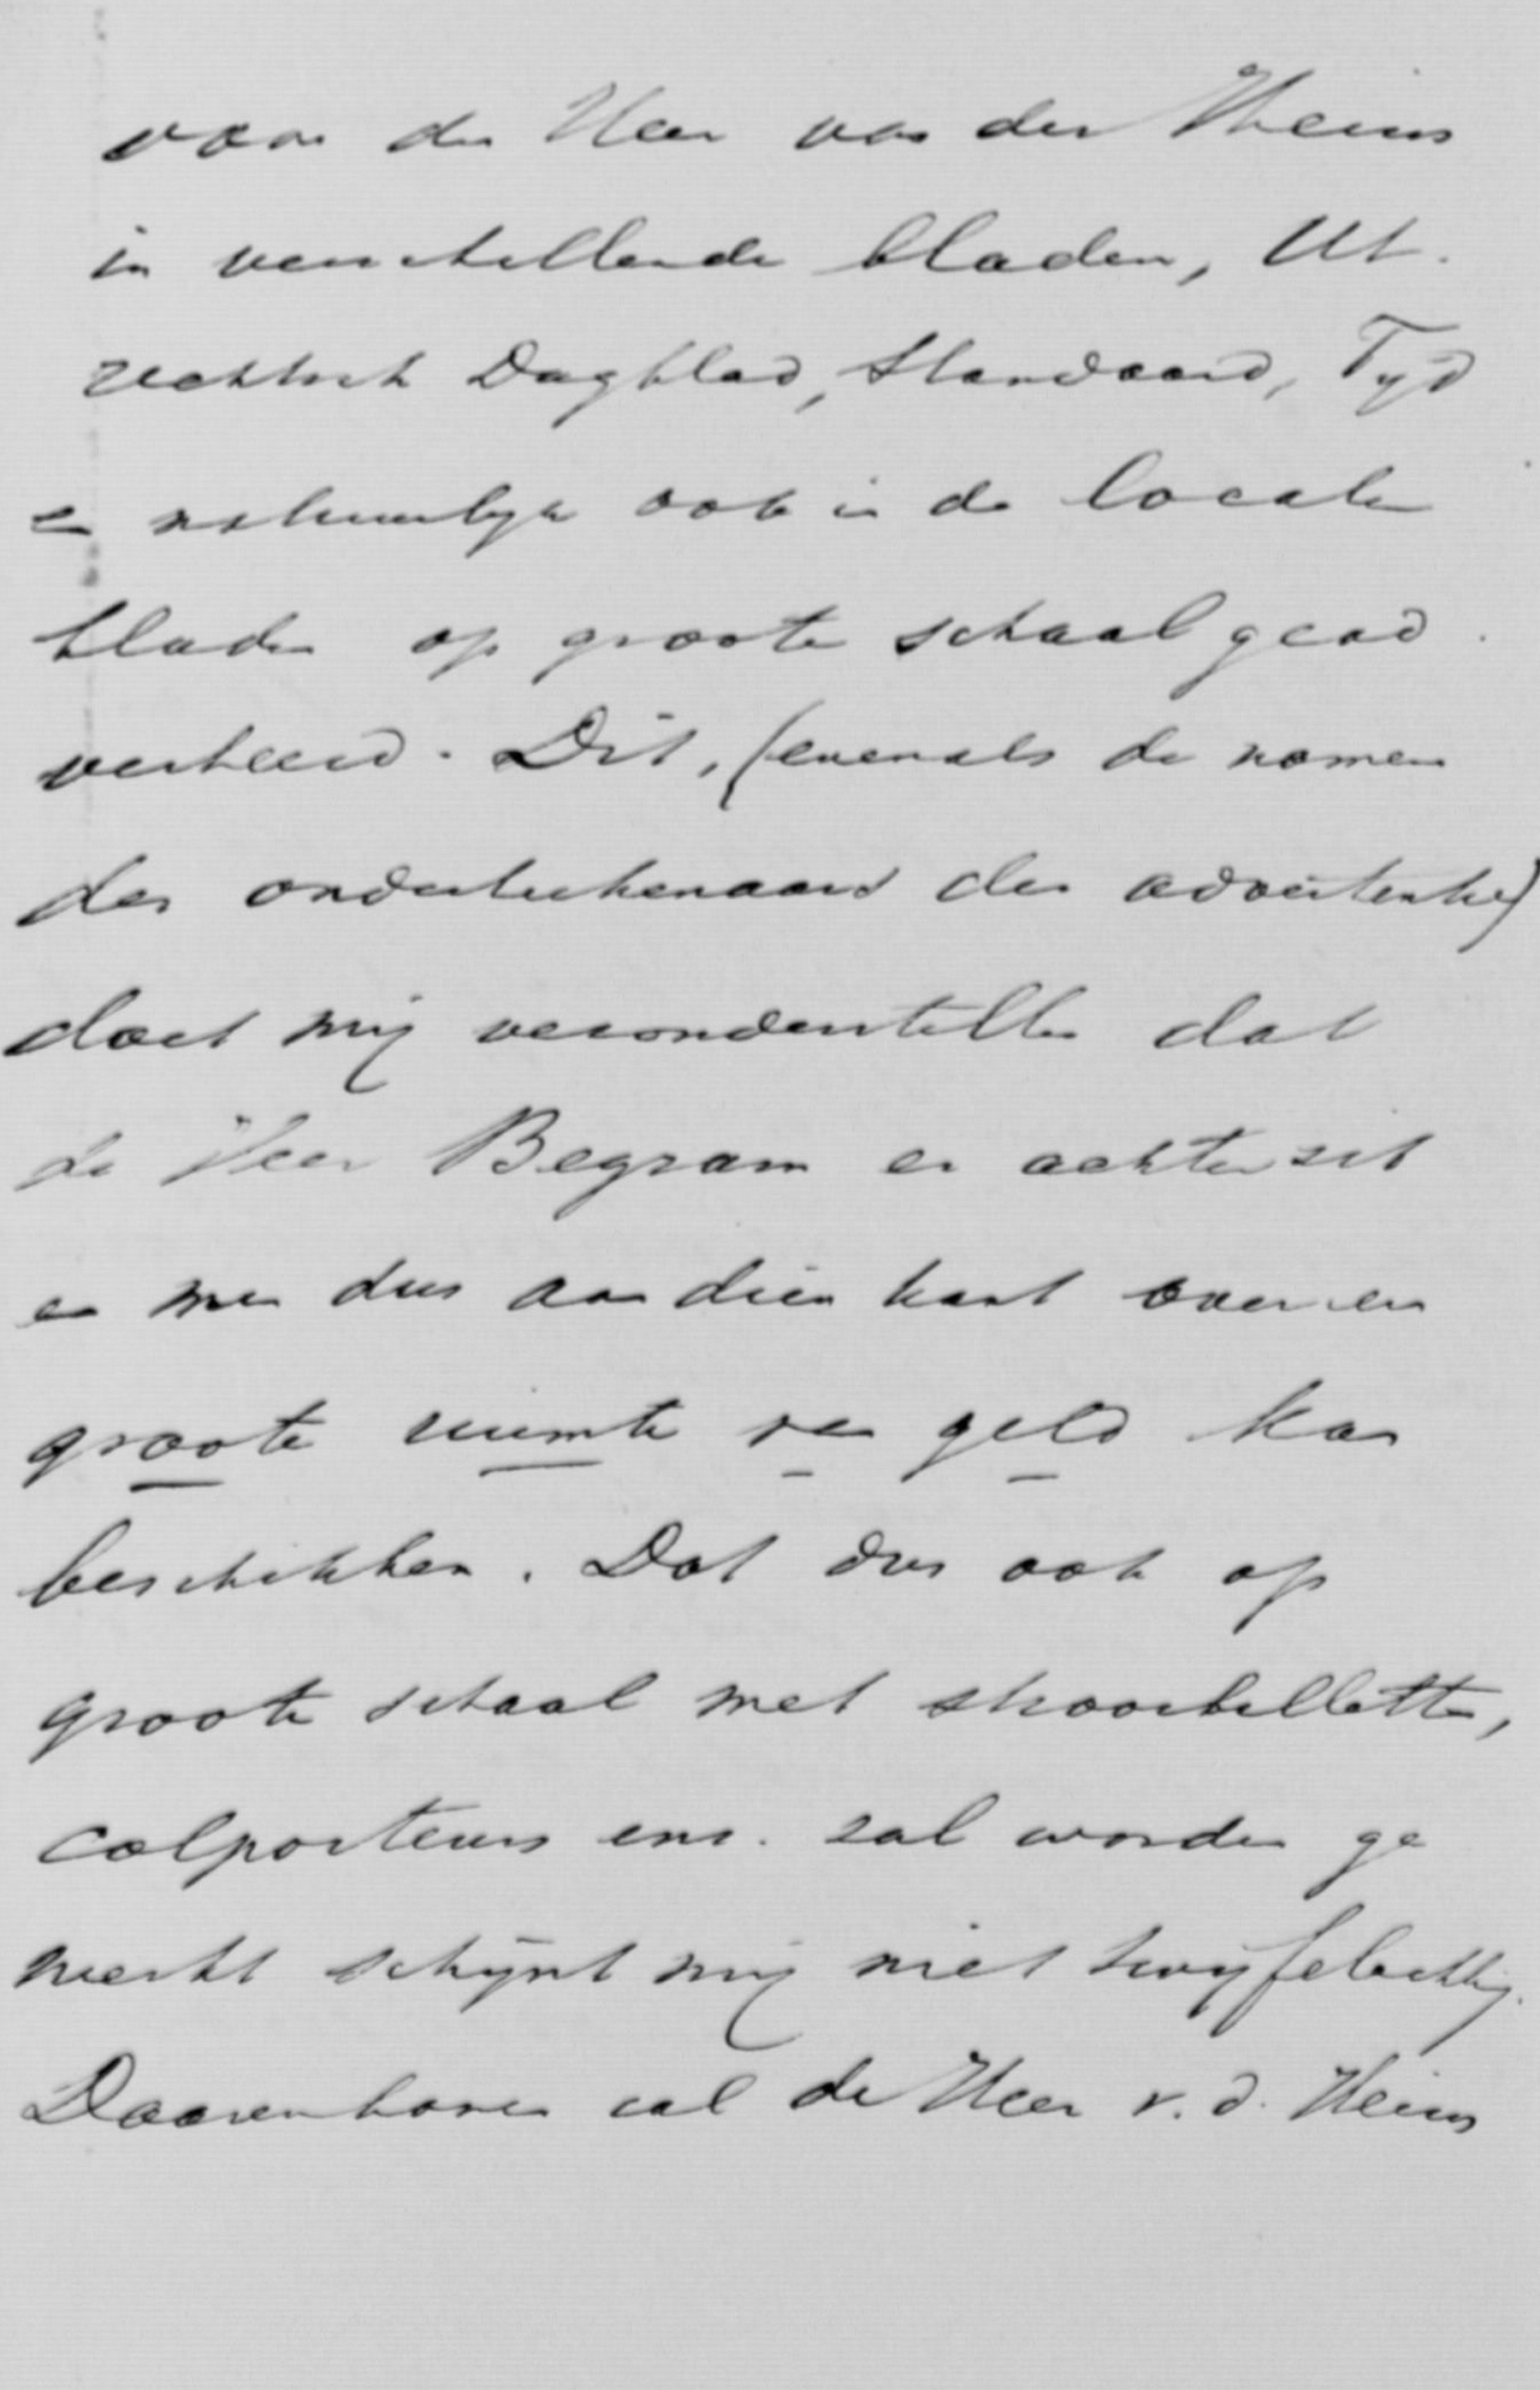 voor den Heer van der Heims
in verschillende bladen, Ut-
rechtsch Dagblad, Standaard, Tyd
en natuurlyk ook in de locale
bladen op groote schaal gead-
verteerd. Dit, (evenals de namen
der onderteekenaars der advertentie)
doet mij veronderstellen dat
de Heer Begram er achter zit
en men dus aan dien kant over een
groote ruimte van geld kan
beschikken. Dat dus ook op
groote schaal met strooibilletten,
colporteurs enz. zal worden ge
werkt schijnt mij niet twyfelachtig.
Daarenboven zal de Heer v. d. Heims